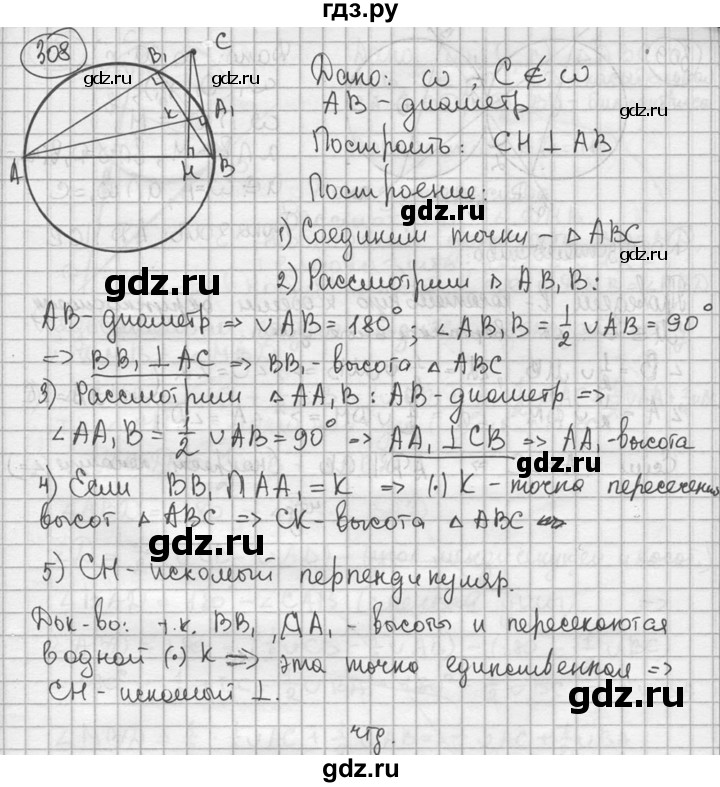 гдз.ру
308
C
B₁
gdz.ru
gdz.ru
K
A₁
gdz.ru
A
H
B
Дано: ω, C ∉ ω
AB - диаметр
gdz.ru
Построить: CH ⊥ AB
gdz.ru
Построение:
gdz.ru
1) Соединим точки - △ ABC
gdz.ru
2) Рассмотрим △ AB₁B:
AB - диаметр ⇒ ∪AB = 180°; ∠AB₁B = 1/2 ∪AB = 90°
⇒ BB₁ ⊥ AC ⇒ BB₁ - высота △ ABC
gdz.ru
3) Рассмотрим △ AA₁B: AB - диаметр ⇒
∠AA₁B = 1/2 ∪AB = 90° ⇒ AA₁ ⊥ CB ⇒ AA₁ - высота
gdz.ru
4) Если BB₁ ∩ AA₁ = K ⇒ (·) K - точка пересечения
высот △ ABC ⇒ CK - высота △ ABC
gdz.ru
5) CH - искомый перпендикуляр.
gdz.ru
Док-во: т.к. BB₁, AA₁ - высоты и пересекаются
в одной (·) K ⇒ эта точка единственная ⇒
CH - искомый ⊥.
gdz.ru
чтд.
gdz.ru